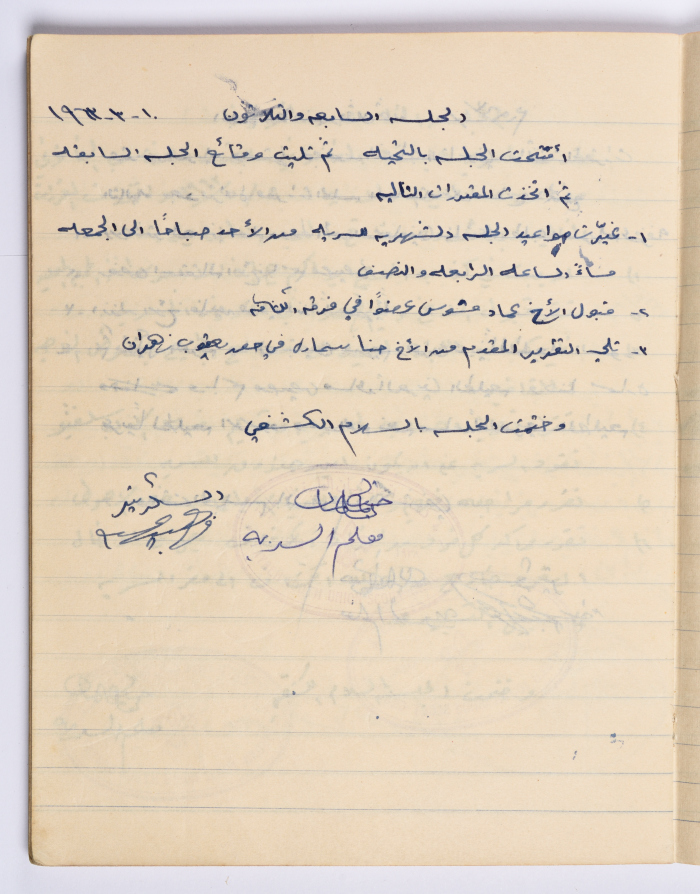 الجلسه السابعه والثلاثون ١٠-٣-١٩٦٣
أفتتحت الجلسه بالتحيله ثم تليت وقائع الجلسه السابقه
ثم اتخذت المقررات التاليه
١- غيّرت مواعيد الجلسه الشهريه للسريه من الأحد صباحًا الى الجمعه
مساءً الساعه الرابعه والنصف
٢- قبول الأخ عماد مشوس عضوًا في فرقه الكشافه
٣- تلي التقرير المقدم من الأخ حنا سماره في حق يعقوب زهران
وختمت الجلسه بالسلام الكشفي
السكرتير
معلم السريه